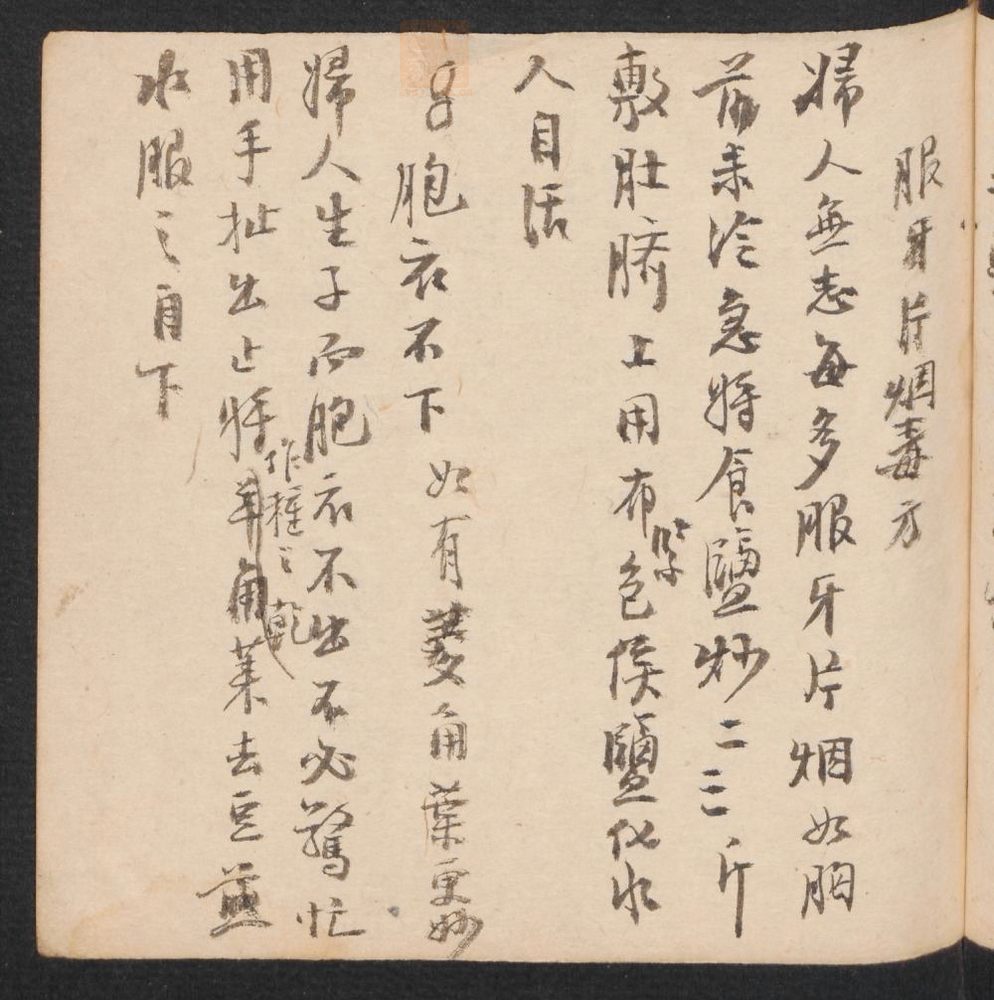 服牙片烟毒方
婦人無志每多服牙片烟如胸
前未冷急將食鹽炒二三斤
敷肚臍上用布紮包候鹽化水
人自活
胞衣不下 如有菱角葉更妙
婦人生子而胞衣不出不必驚忙
用手扯出止將羊角葉去豆煎
作種之乾
水服之自下